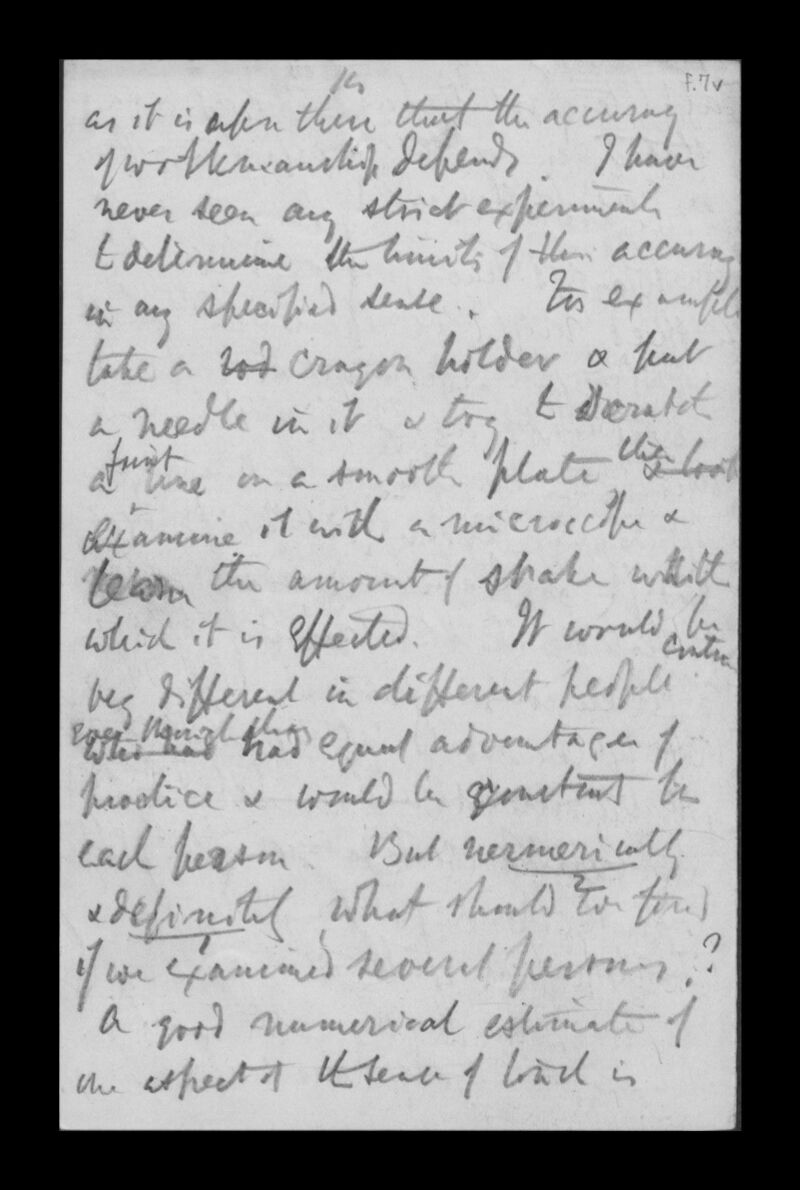 f.7v
as it is upon them that the accuracy
of workmanship depends. I have
never seen any strict experiments
to determine the limits of this accuracy
in any specified sense. For example
take a rod crayon holder & put
a needle in it & try to scratch
a faint line on a smooth plate then & look
examine it with a microscope &
learn the amount of shake with
which it is effected. It would be
very different in different people
even though they who had had equal advantages of
practice & would be constant for
each person. But numerically
& definitely what should we find
if we examined several persons?
A good numerical estimate of
one aspect of the sense of touch is